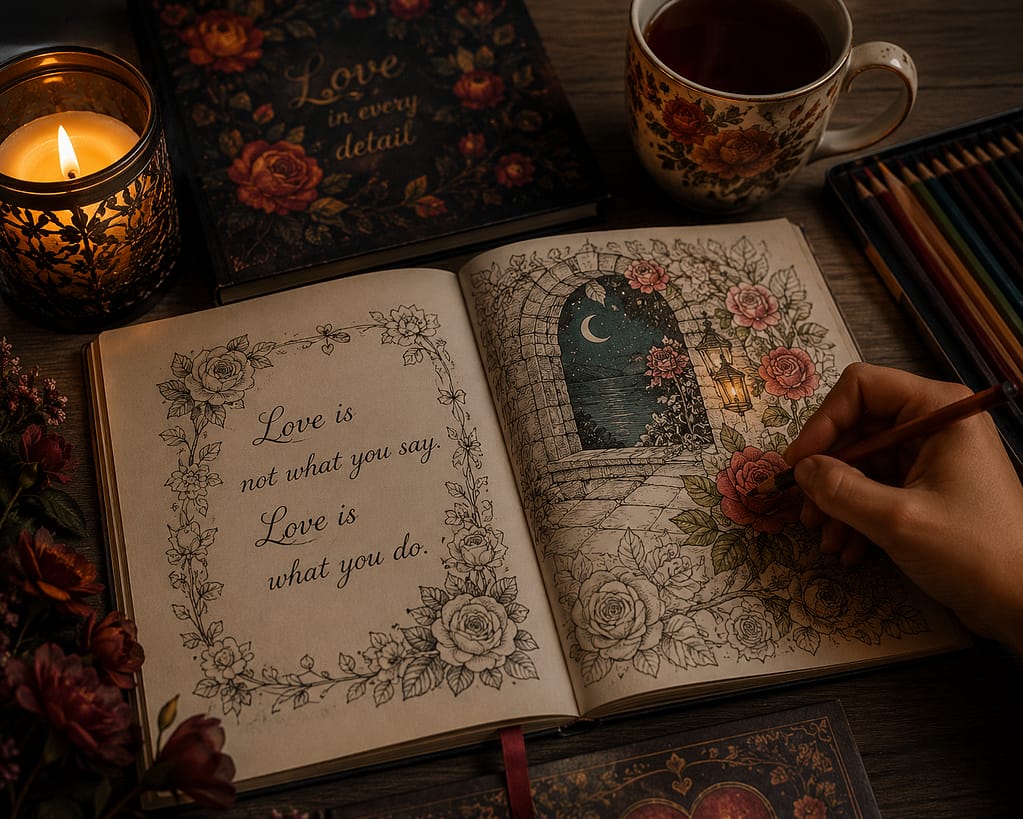 Love
in every
detail
Love is
not what you say.
Love is
what you do.